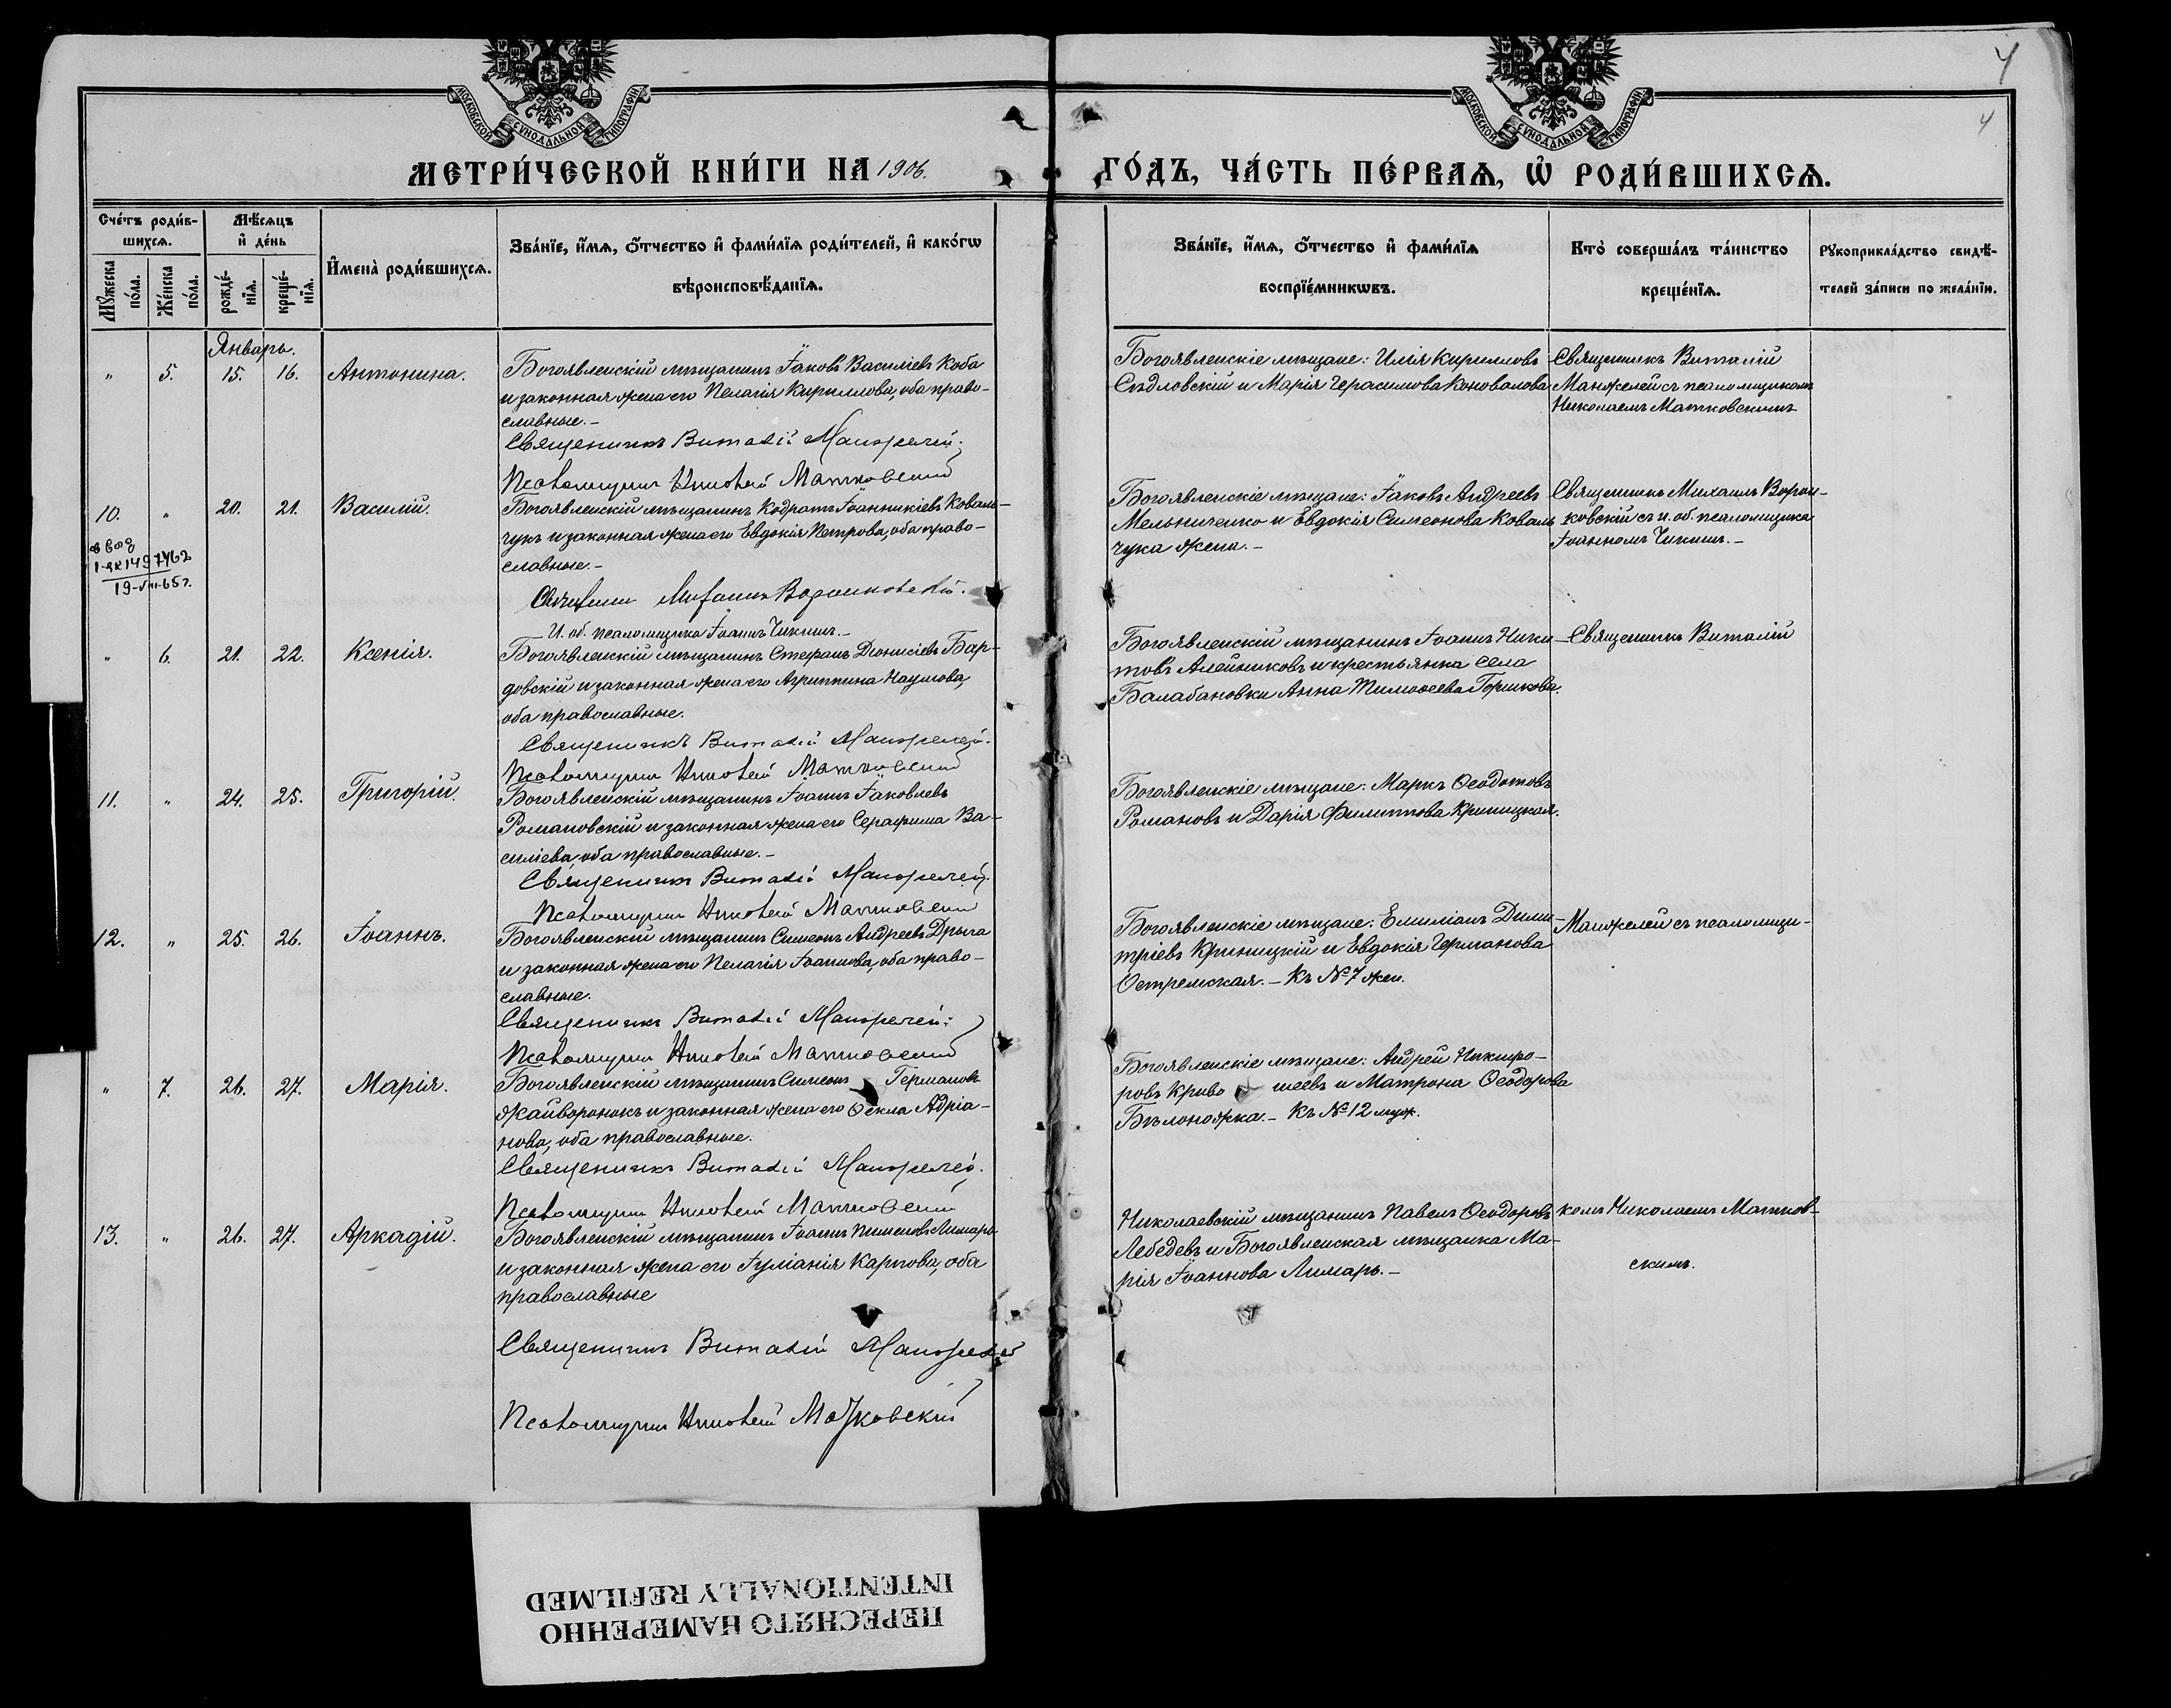 4
4
МОСКОВСКОЙ СѴНОДАЛЬНОЙ ТИПОГРАФІИ
МОСКОВСКОЙ СѴНОДАЛЬНОЙ ТИПОГРАФІИ
МЕТРИ́ЧЕСКОЙ КНИ́ГИ НА 1906.
ГО́ДЪ, ЧА́СТЬ ПЕ́РВАѦ, Ѡ҆ РОДИ́ВШИХСѦ.
Сче́тъ роди́в-
шихсѧ.
Мꙋ́жеска
по́ла.
Же́нска
по́ла.
Мѣ́сѧцъ
и҆ де́нь
рожде́-
нїѧ.
креще́-
нїѧ.
И҆мена̀ роди́вшихсѧ.
Зва́нїе, и҆́мѧ, ѻ҆́тчество и҆ фами́лїѧ роди́телей, и҆ како́гѡ
вѣроисповѣ́данїѧ.
Зва́нїе, и҆́мѧ, ѻ҆́тчество и҆ фами́лїѧ
воспрїе́мникѡвъ.
Кто̀ соверша́лъ та́инство
креще́нїѧ.
Рꙋкоприкла́дство свидѣ́-
телей за́писи по жела́нїю.
Январь.
" 5. 15. 16. Антонина.
Богоявленскій мѣщанинъ Іаковъ Василіевъ Коба
и законная жена его Пелагія Кириллова, оба право-
славные.-
Священникъ Виталій Манжелей.
Псаломщикъ Николай Матковскій
Богоявленскіе мѣщане: Илія Кирилловъ
Сѣдловскій и Марія Герасимова Коновалова
Священникъ Виталій
Манжелей съ псаломщикомъ
Николаемъ Матковскимъ
10. " 20. 21. Василій.
1-ЯК 1497462
19-VIII-65 г.
Богоявленскій мѣщанинъ Кодратъ Іоанникіевъ Коваль-
чукъ и законная жена его Евдокія Петрова, оба право-
славные.-
Священникъ Михаилъ Воронковскій.
И. об. псаломщика Іоаннъ Чикишъ.-
Богоявленскіе мѣщане: Іаковъ Андреевъ
Мельниченко и Евдокія Симеонова Коваль
чука жена.-
Священникъ Михаилъ Ворон-
ковскій съ и. об. псаломщика
Іоанномъ Чикишъ.-
" 6. 21. 22. Ксенія.
Богоявленскій мѣщанинъ Стефанъ Діонисіевъ Бар-
довскій и законная жена его Агриппина Наумова,
оба православные.
Священникъ Виталій Манжелей.
Псаломщикъ Николай Матковскій
Богоявленскій мѣщанинъ Іоаннъ Ники-
товъ Алейниковъ и крестьянка села
Балабановки Анна Тимоѳеева Горшкова.
Священникъ Виталій
11. " 24. 25. Григорій.
Богоявленскій мѣщанинъ Іоаннъ Іаковлевъ
Романовскій и законная жена его Серафима Ва-
силіева, оба православные.-
Священникъ Виталій Манжелей.
Псаломщикъ Николай Матковскій
Богоявленскіе мѣщане: Маркъ Ѳеодотовъ
Романовъ и Дарія Филиппова Криницкая.
12. " 25. 26. Іоаннъ.
Богоявленскій мѣщанинъ Симеонъ Андреевъ Дрыга
и законная жена его Пелагія Іоаннова, оба право-
славные.
Священникъ Виталій Манжелей.
Псаломщикъ Николай Матковскій
Богоявленскіе мѣщане: Емиліанъ Дими-
тріевъ Криницкій и Евдокія Германова
Остремская.- Къ № 7 жен.
Манжелей съ псаломщи-
" 7. 26. 27. Марія.
Богоявленскій мѣщанинъ Симеонъ Германовъ
Жайворонокъ и законная жена его Ѳекла Адріа-
нова, оба православные.
Священникъ Виталій Манжелей.
Псаломщикъ Николай Матковскій
Богоявленскіе мѣщане: Андрей Никифо-
ровъ Криво шеевъ и Матрона Ѳеодорова
Бѣлоножка.- Къ № 12 муж.
13. " 26. 27. Аркадій.
Богоявленскій мѣщанинъ Іоаннъ Пименовъ Лимарь
и законная жена его Іуліанія Карпова, оба
православные
Священникъ Виталій Манжелей
Псаломщикъ Николай Матковскій
Николаевскій мѣщанинъ Павелъ Ѳеодоровъ
Лебедевъ и Богоявленская мѣщанка Ма-
рія Іоаннова Лимарь.-
комъ Николаемъ Матков-
скимъ.
ПЕРЕСНЯТО НАМЕРЕННО
INTENTIONALLY REFILMED